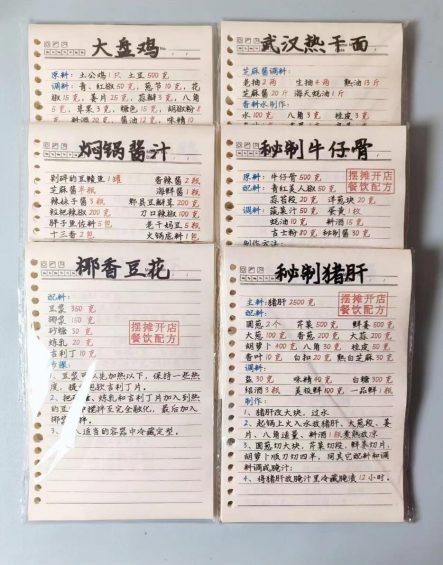 大盘鸡
原料：土公鸡1只 土豆500克
调料：青、红椒50克，葱节10克，花
椒15克，姜片25克，蒜瓣3克，八角
5克，草果3克，糖色15克，胡椒粉8
克，料酒20克，酱油12克，味精10
武汉热干面
芝麻酱调料：
老抽2两 生抽4两 熟油13斤
芝麻酱20斤 海天蚝油1斤
香料水制作：
水100克 八角3克 桂皮3克
焖锅酱汁
剁碎的豆豉鱼1罐 香辣酱2瓶
芝麻酱半瓶 海鲜酱1瓶
辣妹子酱3瓶 郫县豆瓣酱200克
糍粑辣椒200克 刀口辣椒100克
胖子鱼佐料5包 老干妈豆5瓶
十三香2包 火锅底料1包
秘制牛仔骨
原料：牛仔骨500克
配料：青红美人椒50克
蒜苔段20克 洋葱块20克
调料：蔬菜汁50克 蛋黄1枚
蚝油10克 料酒15克
吉士粉80克 秘制酱30克
制作方法：
摆摊开店
餐饮配方
椰香豆花
配料：
豆浆350克
椰浆150克
砂糖30克
炼乳20克
吉利丁10克
步骤：
摆摊开店
餐饮配方
1、豆浆可以先加热以下，保持一些热
度，提前泡软吉利丁片。
2、把砂糖、炼乳和吉利丁片加入到热
的豆浆中搅拌至完全融化，最后加入
椰浆拌拌。
3、入适当的容器中冷藏定型。
秘制猪肝
主料：猪肝2500克
配料：
圆葱2个 芹菜500克 鲜姜500克
大葱100克 香葱200克 大蒜200克
胡萝卜400克 八角30克 桂皮50克
香叶10克 白扣20克 熟白芝麻30克
调料：
盐30克 味精40克 白糖300克
绍酒3瓶 美极鲜100克 一品鲜1瓶
制作：
摆摊开店
餐饮配方
1、猪肝改大块，过水
2、起锅上火入水放猪肝、大葱段、姜
片、八角适量、料酒1瓶煮熟放凉
3、圆葱切大块，芹菜切段，鲜姜切片，
胡萝卜顺刀切四半，同其它配料和调
料调成腌汁；
4、将猪肝放腌汁里冷藏腌渍12小时。